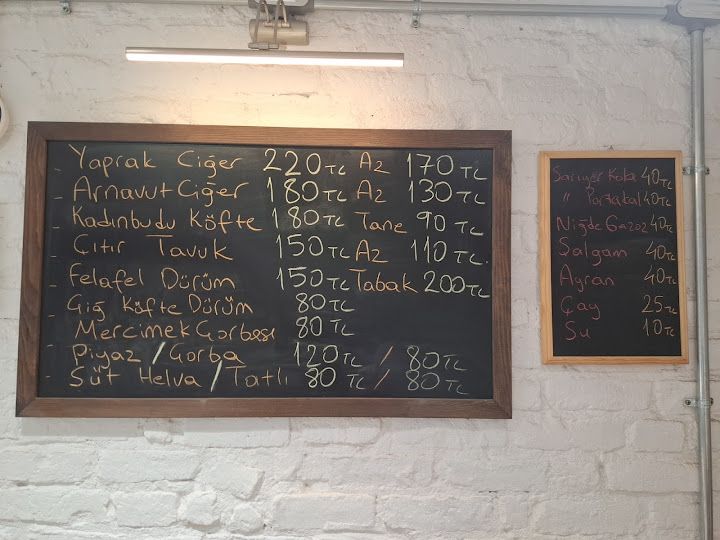 - Yaprak Ciğer 220 TL Az 170 TL
- Arnavut Ciğer 180 TL Az 130 TL
- Kadınbudu Köfte 180 TL Tane 90 TL
- Çıtır Tavuk 150 TL Az 110 TL.
- Felafel Dürüm 150 TL Tabak 200 TL
- Çiğ Köfte Dürüm 80 TL
- Mercimek Çorbası 80 TL
- Piyaz / Çorba 120 TL / 80 TL
- Süt Helva / Tatlı 80 TL / 80 TL
Sarıyer Kola 40 TL
" Portakal 40 TL
Niğde Gazoz 40 TL
Şalgam 40 TL
Ayran 40 TL
Çay 25 TL
Su 10 TL